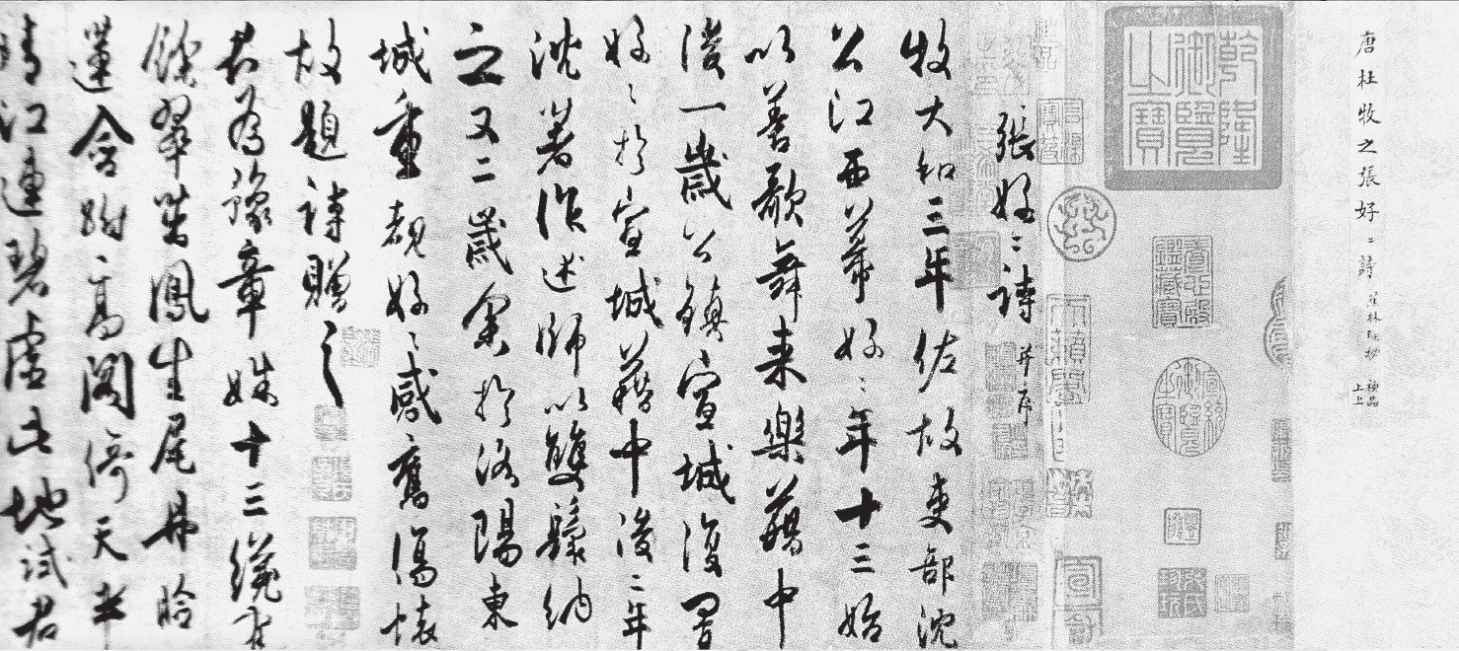 唐杜牧之張好〻詩
神品
上上
乾隆御覽之寶
張好〻詩 并序
牧大和三年佐故吏部沈
公江西幕好〻年十三始
以善歌舞来樂籍中
後一歲公鎮宣城復置
好〻於宣城籍中後二年
沈著作述師以雙鬟納
之又二歲余於洛陽東
城重覩好〻感舊傷懷
故題詩贈之
君為豫章姝十三纔有
餘翠茁鳳生尾丹臉
蓮含跗高閣倚天半
晴江連碧虛此地試君